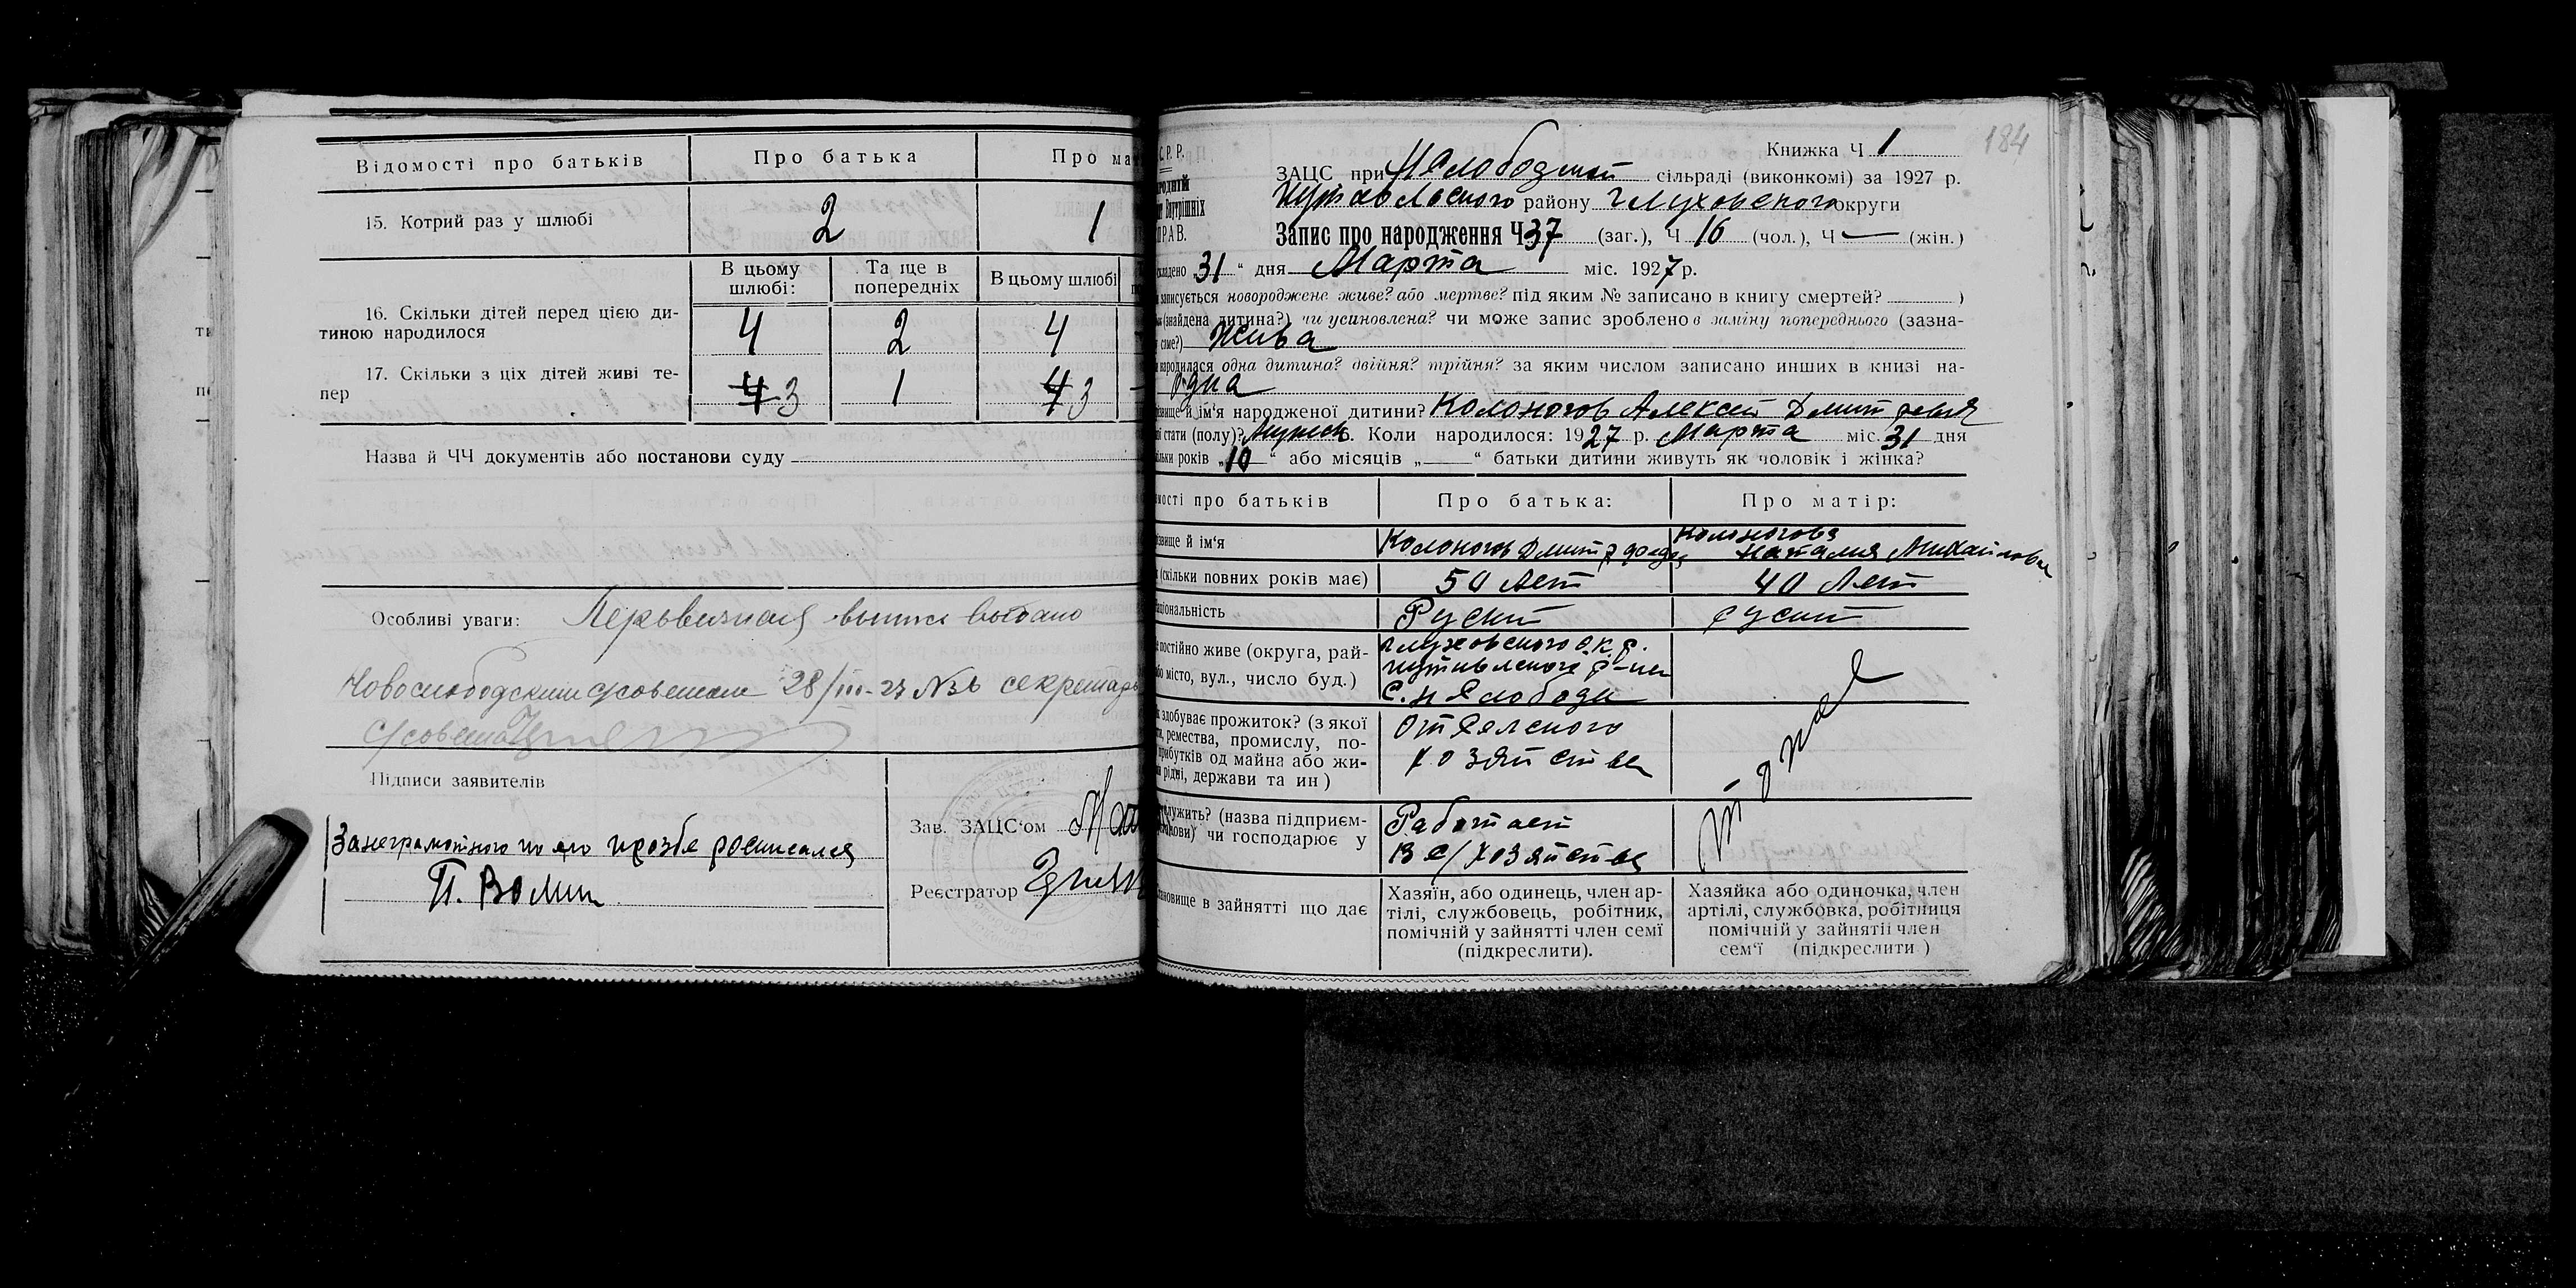 Відомості про батьків
Про батька
Про мат
15. Котрий раз у шлюбі
2
1
В цьому шлюбі:
Та ще в попередніх
В цьому шлюбі
16. Скільки дітей перед цією ди-
тиною народилося
4
2
4
17. Скільки з ціх дітей живі те-
пер
4 3
1
4 3
Назва й ЧЧ документів або постанови суду
Особливі уваги:
выдано
Новослободским с/советом 28/III-27 № секретарь
с/совета
Підписи заявителів
За неграмотного по его прозбе росписался
П. Волик
Зав. ЗАЦС'ом
Реєстратор
184
Книжка Ч 1
С.Р.Р.
ЗАЦС при Н Слободской сільраді (виконкомі) за 1927 р.
Путивльского району Глуховского округи
ПРАВ.
Запис про народження Ч 37 (заг.), Ч 16 (чол.), Ч — (жін.)
31 “ дня Марта міс. 1927 р.
записується новороджене живе? або мертве? під яким № записано в книгу смертей? )
(знайдена дитина?) чи усиновлена? чи може запис зроблено в заміну попереднього (зазна-
Жива
народилася одна дитина? двійня? трійня? за яким числом записано инших в книзі на-
одна
й ім‘я народженої дитини? Колоногов Алексей Дмит
стати (полу)? Мужеск. Коли народилося: 1927 р. Марта міс. 31 дня
років „10“ або місяців „—“ батьки дитини живуть як чоловік і жінка?
про батьків
Про батька:
Про матір:
й ім‘я
Колоногов Дмит
Колоногова
Наталия Михайловна
(скільки повних років має)
50 лет
40 лет
Руский
руский
постійно живе (округа, рай-
місто, вул., число буд.)
Глуховского окр.
Путивлского р-на
с. Н Слобода
здобуває прожиток? (з якої
ремества, промислу, по-
прибутків од майна або жи-
рідні, держави та ин)
От селского
хозяйства
служить? (назва підприєм-
чи господарює у
Работает
в с/хозяйстве
в зайнятті що дає
Хазяїн, або одинець, член ар-
тілі, службовець, робітник,
помічній у зайнятті член семї
(підкреслити).
Хазяйка або одиночка, член
артілі, службовка, робітниця
помічній у зайнятії член
сем‘ї (підкреслити )